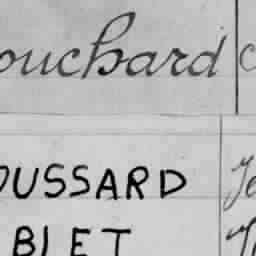 ouchard
OUSSARD
BLET